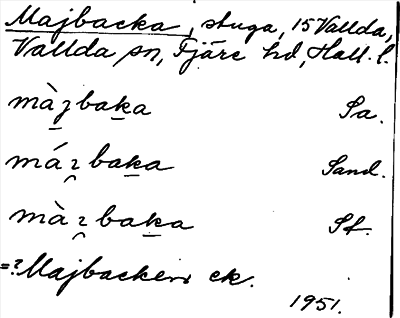 Majbacka, stuga, 15 Vallda,
Vallda sn, Fjäre hd, Hall. l.
màjbaka Sa.
máɿbaka Sand.
màɿbaka St.
=? Majbacken ek.
1951.